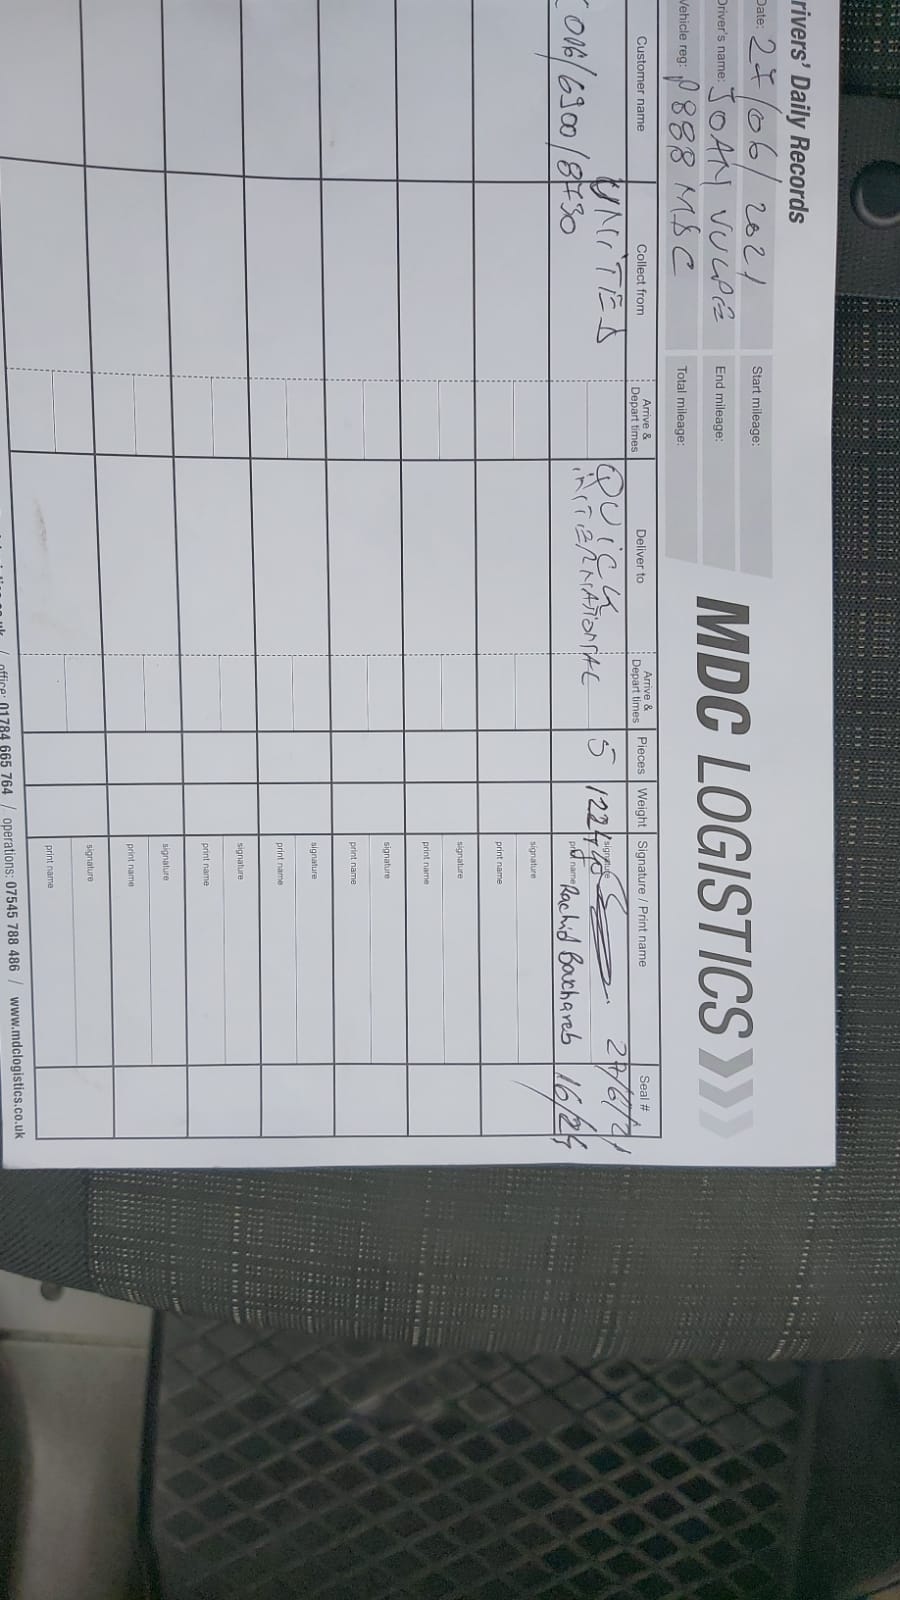 rivers' Daily Records
Date: 27/06/2021
Driver's name: JOAN VULPE
Vehicle reg: P888 MDC
Start mileage:
End mileage:
Total mileage:
MDC LOGISTICS
Customer name Collect from Arrive & Depart times Deliver to Arrive & Depart times Pieces Weight Signature / Print name Seal #
UNITED QUICK 5 122 signature 27/6/21
016/6900/8730 INTERNATIONAL print name Rachid 16/24
signature
print name
signature
print name
signature
print name
signature
print name
signature
print name
signature
print name
signature
print name
office: 01784 665 764 / operations: 07545 788 486 / www.mdclogistics.co.uk